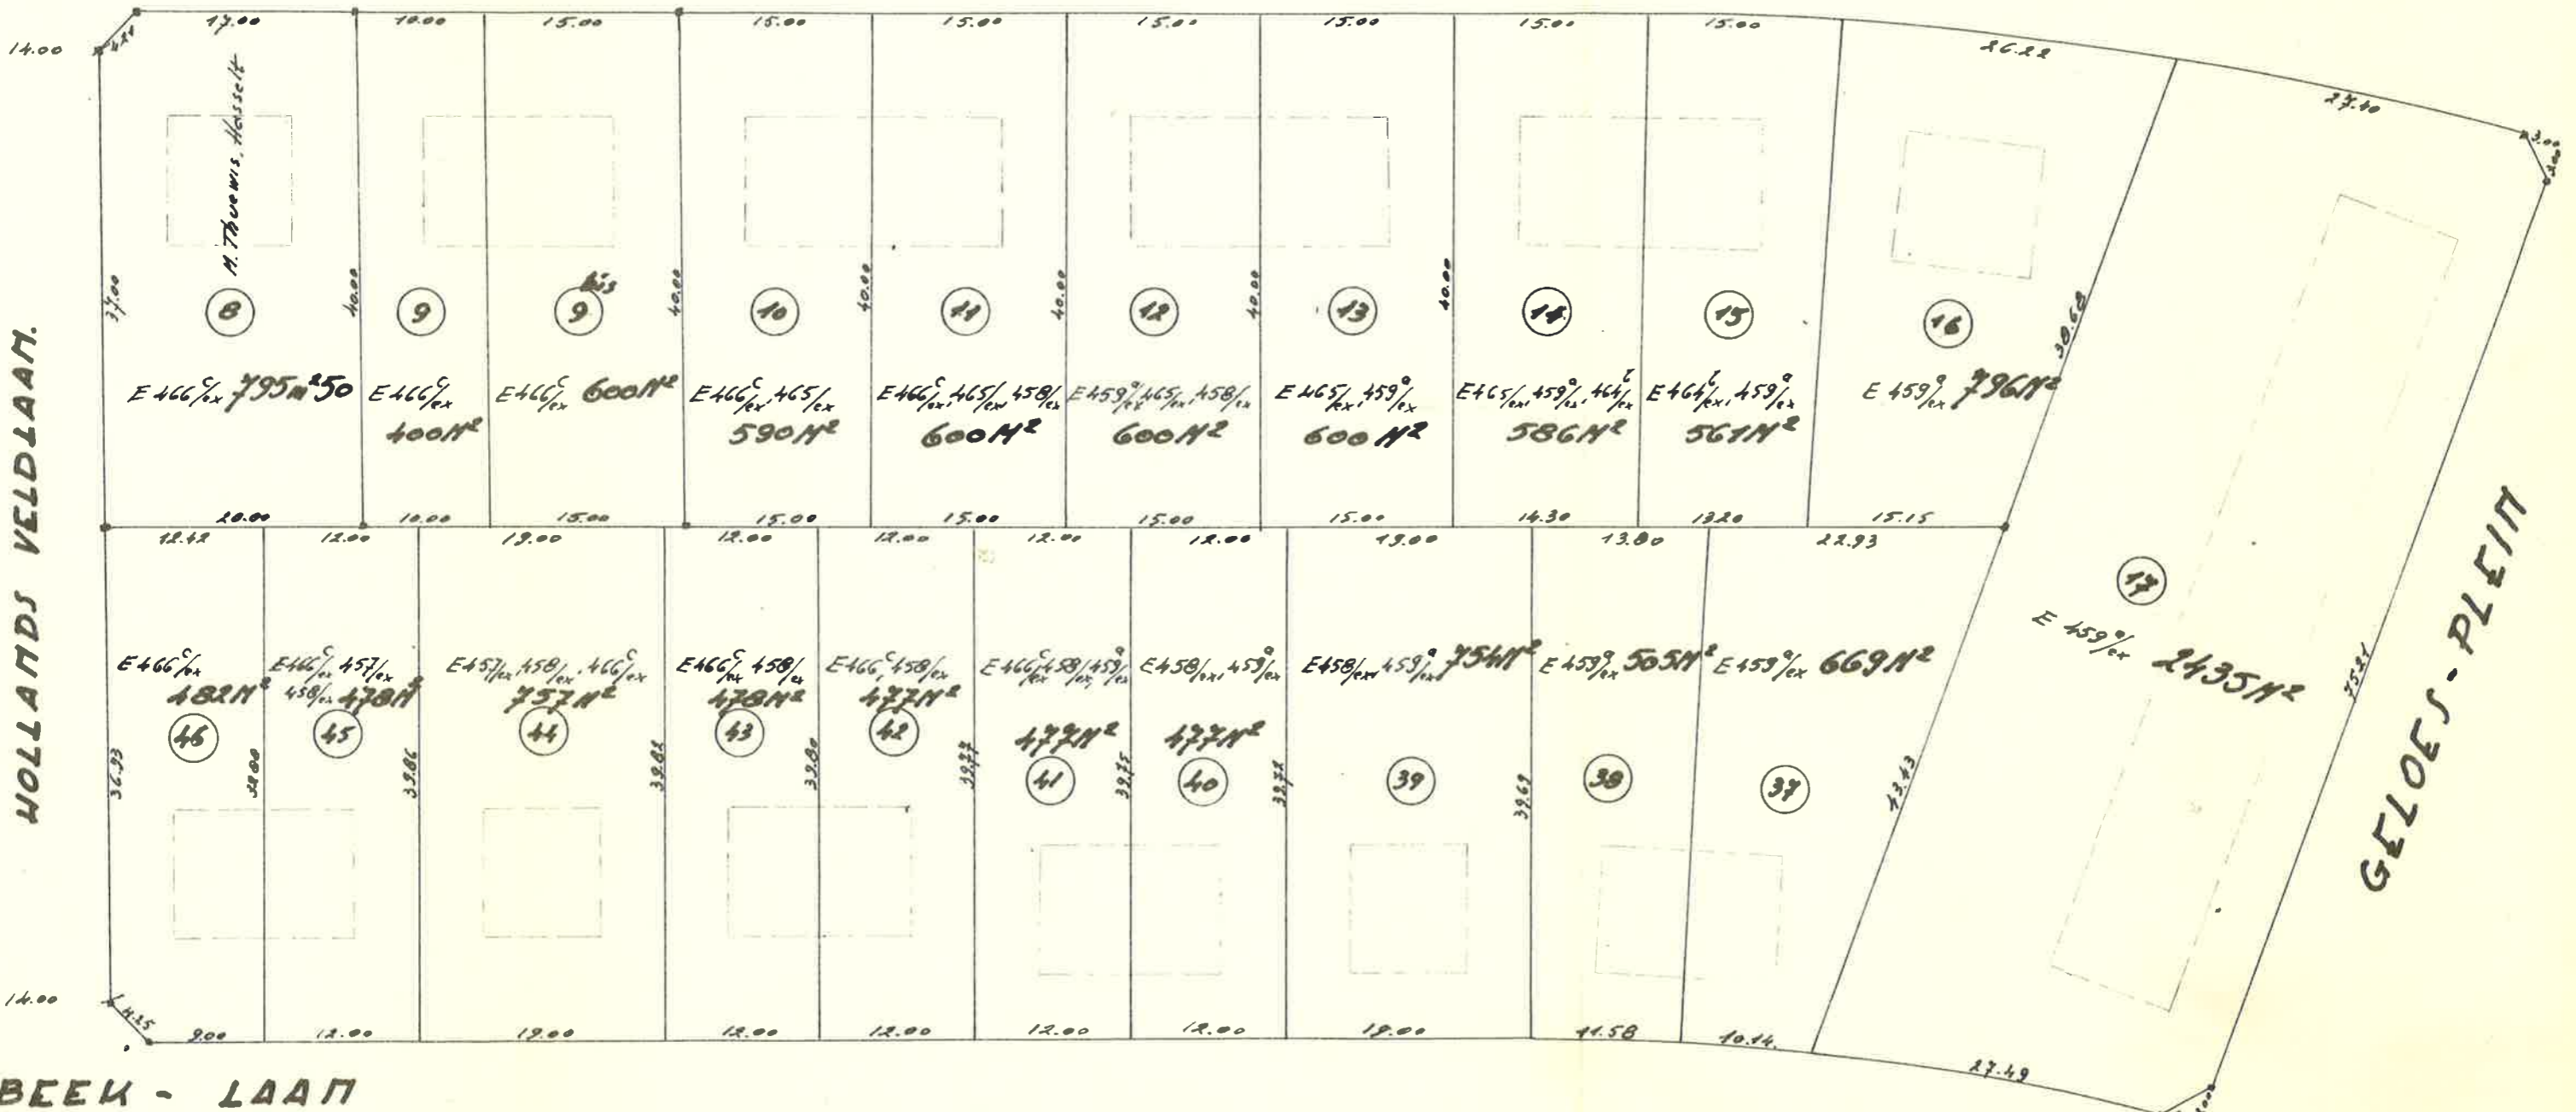 14.00
4.24
17.00
10.00
15.00
15.00
15.00
15.00
15.00
15.00
15.00
26.22
27.40
3.00
3.00
M. Thuewis, Hasselt
37.00
40.00
40.00
40.00
40.00
40.00
40.00
38.68
8
9
9 bis
10
11
12
13
14
15
16
E 466c/ex 795m²50
E 466c/ex
400M²
E 466c/ex 600M²
E 466c/ex, 465/ex
590M²
E 466c/ex, 465/ex, 458/ex
600M²
E 459a/ex, 465/ex, 458/ex
600M²
E 465/ex, 459a/ex
600M²
E 465/ex, 459a/ex, 464/ex
586M²
E 464/ex, 459a/ex
561M²
E 459a/ex 796M²
20.00
10.00
15.00
15.00
15.00
15.00
15.00
14.30
13.20
15.15
12.42
12.00
19.00
12.00
12.00
12.00
12.00
19.00
13.80
22.93
HOLLANDS VELDLAAN.
17
E 459a/ex 2435M²
75.21
GELOES-PLEIN
E 466c/ex
482M²
46
E 466c/ex, 457/ex
458/ex 478M²
45
E 457/ex, 458/ex, 466c/ex
757M²
44
E 466c/ex, 458/ex
478M²
43
E 466c, 458/ex
477M²
42
E 466c/ex, 458/ex, 459a/ex
477M²
41
E 458/ex, 459a/ex
477M²
40
E 458/ex, 459a/ex 754M²
39
E 459a/ex 505M²
38
E 459a/ex 669M²
37
36.93
39.86
39.82
39.80
39.77
39.75
39.72
39.69
43.43
14.00
4.25
9.00
12.00
19.00
12.00
12.00
12.00
12.00
19.00
11.58
10.14.
27.49
BEEK - LAAN